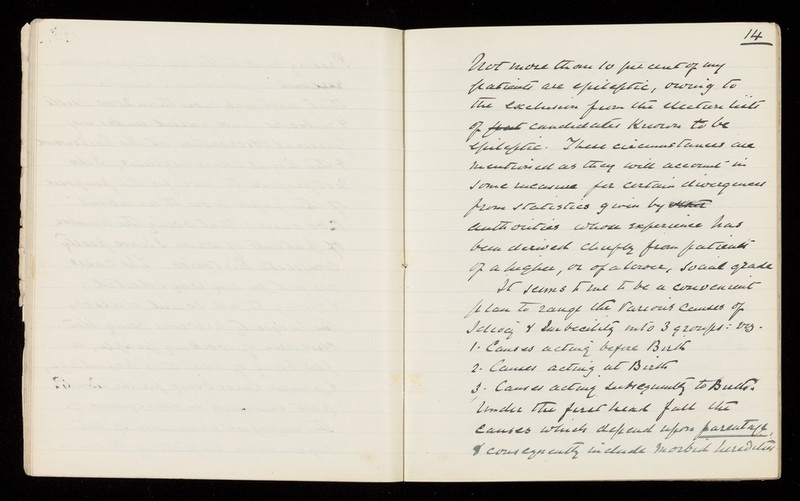 14
Not more than 10 per cent of my
patients are epileptic, owing to
the exclusion from the election lists
of candidates known to be
epileptic. These circumstances are
mentioned as they will account in
some measure for certain divergences
from statistics given by
authorities whose experience has
been derived chiefly from patients
of a higher, or of a lower, social grade
It seems to me to be a convenient
plan to range the various causes of
Idiocy & Imbecility into 3 groups: viz.
1. Causes acting before Birth
2. Causes acting at Birth
3. Causes acting subsequently to Birth.
Under the first head fall the
causes which depend upon parentage,
& consequently include morbid heredities